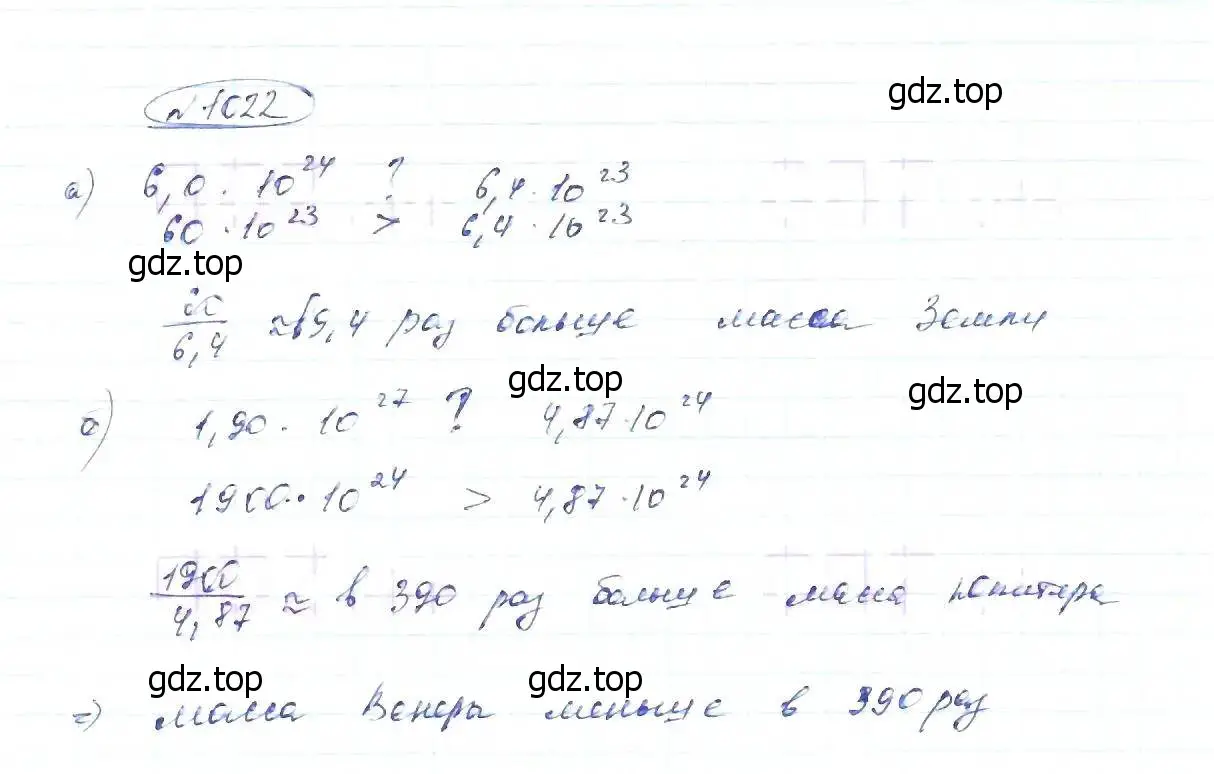 gdz.top
№ 1022
а) 6,0 · 10²⁴ ? 6,4 · 10²³
60 · 10²³ > 6,4 · 10²³
gdz.top
60/6,4 ≈ в 9,4 раз больше масса Земли
gdz.top gdz.top
б) 1,90 · 10²⁷ ? 4,87 · 10²⁴
1900 · 10²⁴ > 4,87 · 10²⁴
1900/4,87 ≈ в 390 раз больше масса Юпитера
gdz.top gdz.top
=) масса Венеры меньше в 390 раз